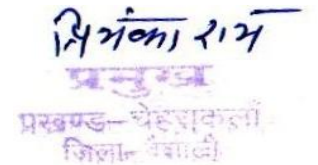 प्रियंका राय
प्रमुख
प्रखण्ड-चेहराकलाँ
जिला-वैशाली